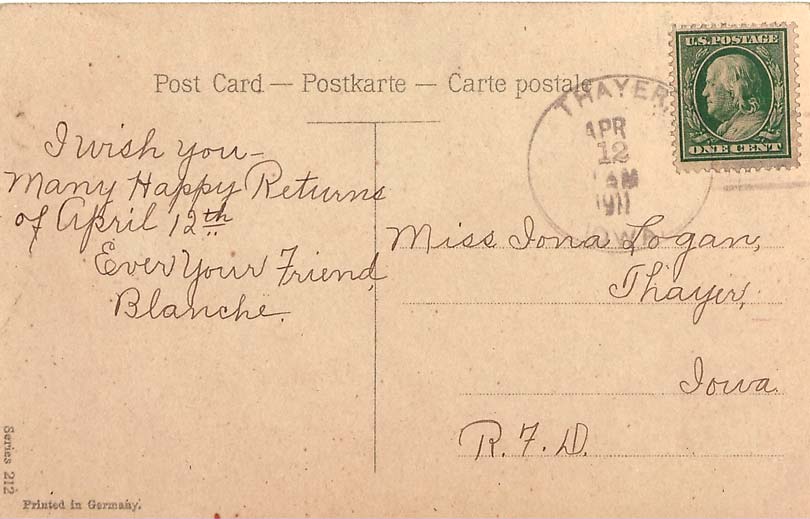 Post Card — Postkarte — Carte postale
U.S. POSTAGE
ONE CENT
THAYER
APR
12
AM
1911
IOWA
I wish you—
Many Happy Returns
of April 12th
Ever Your Friend,
Blanche.
Miss Iona Logan,
Thayer,
Iowa.
R.F.D.
Series 212
Printed in Germany.